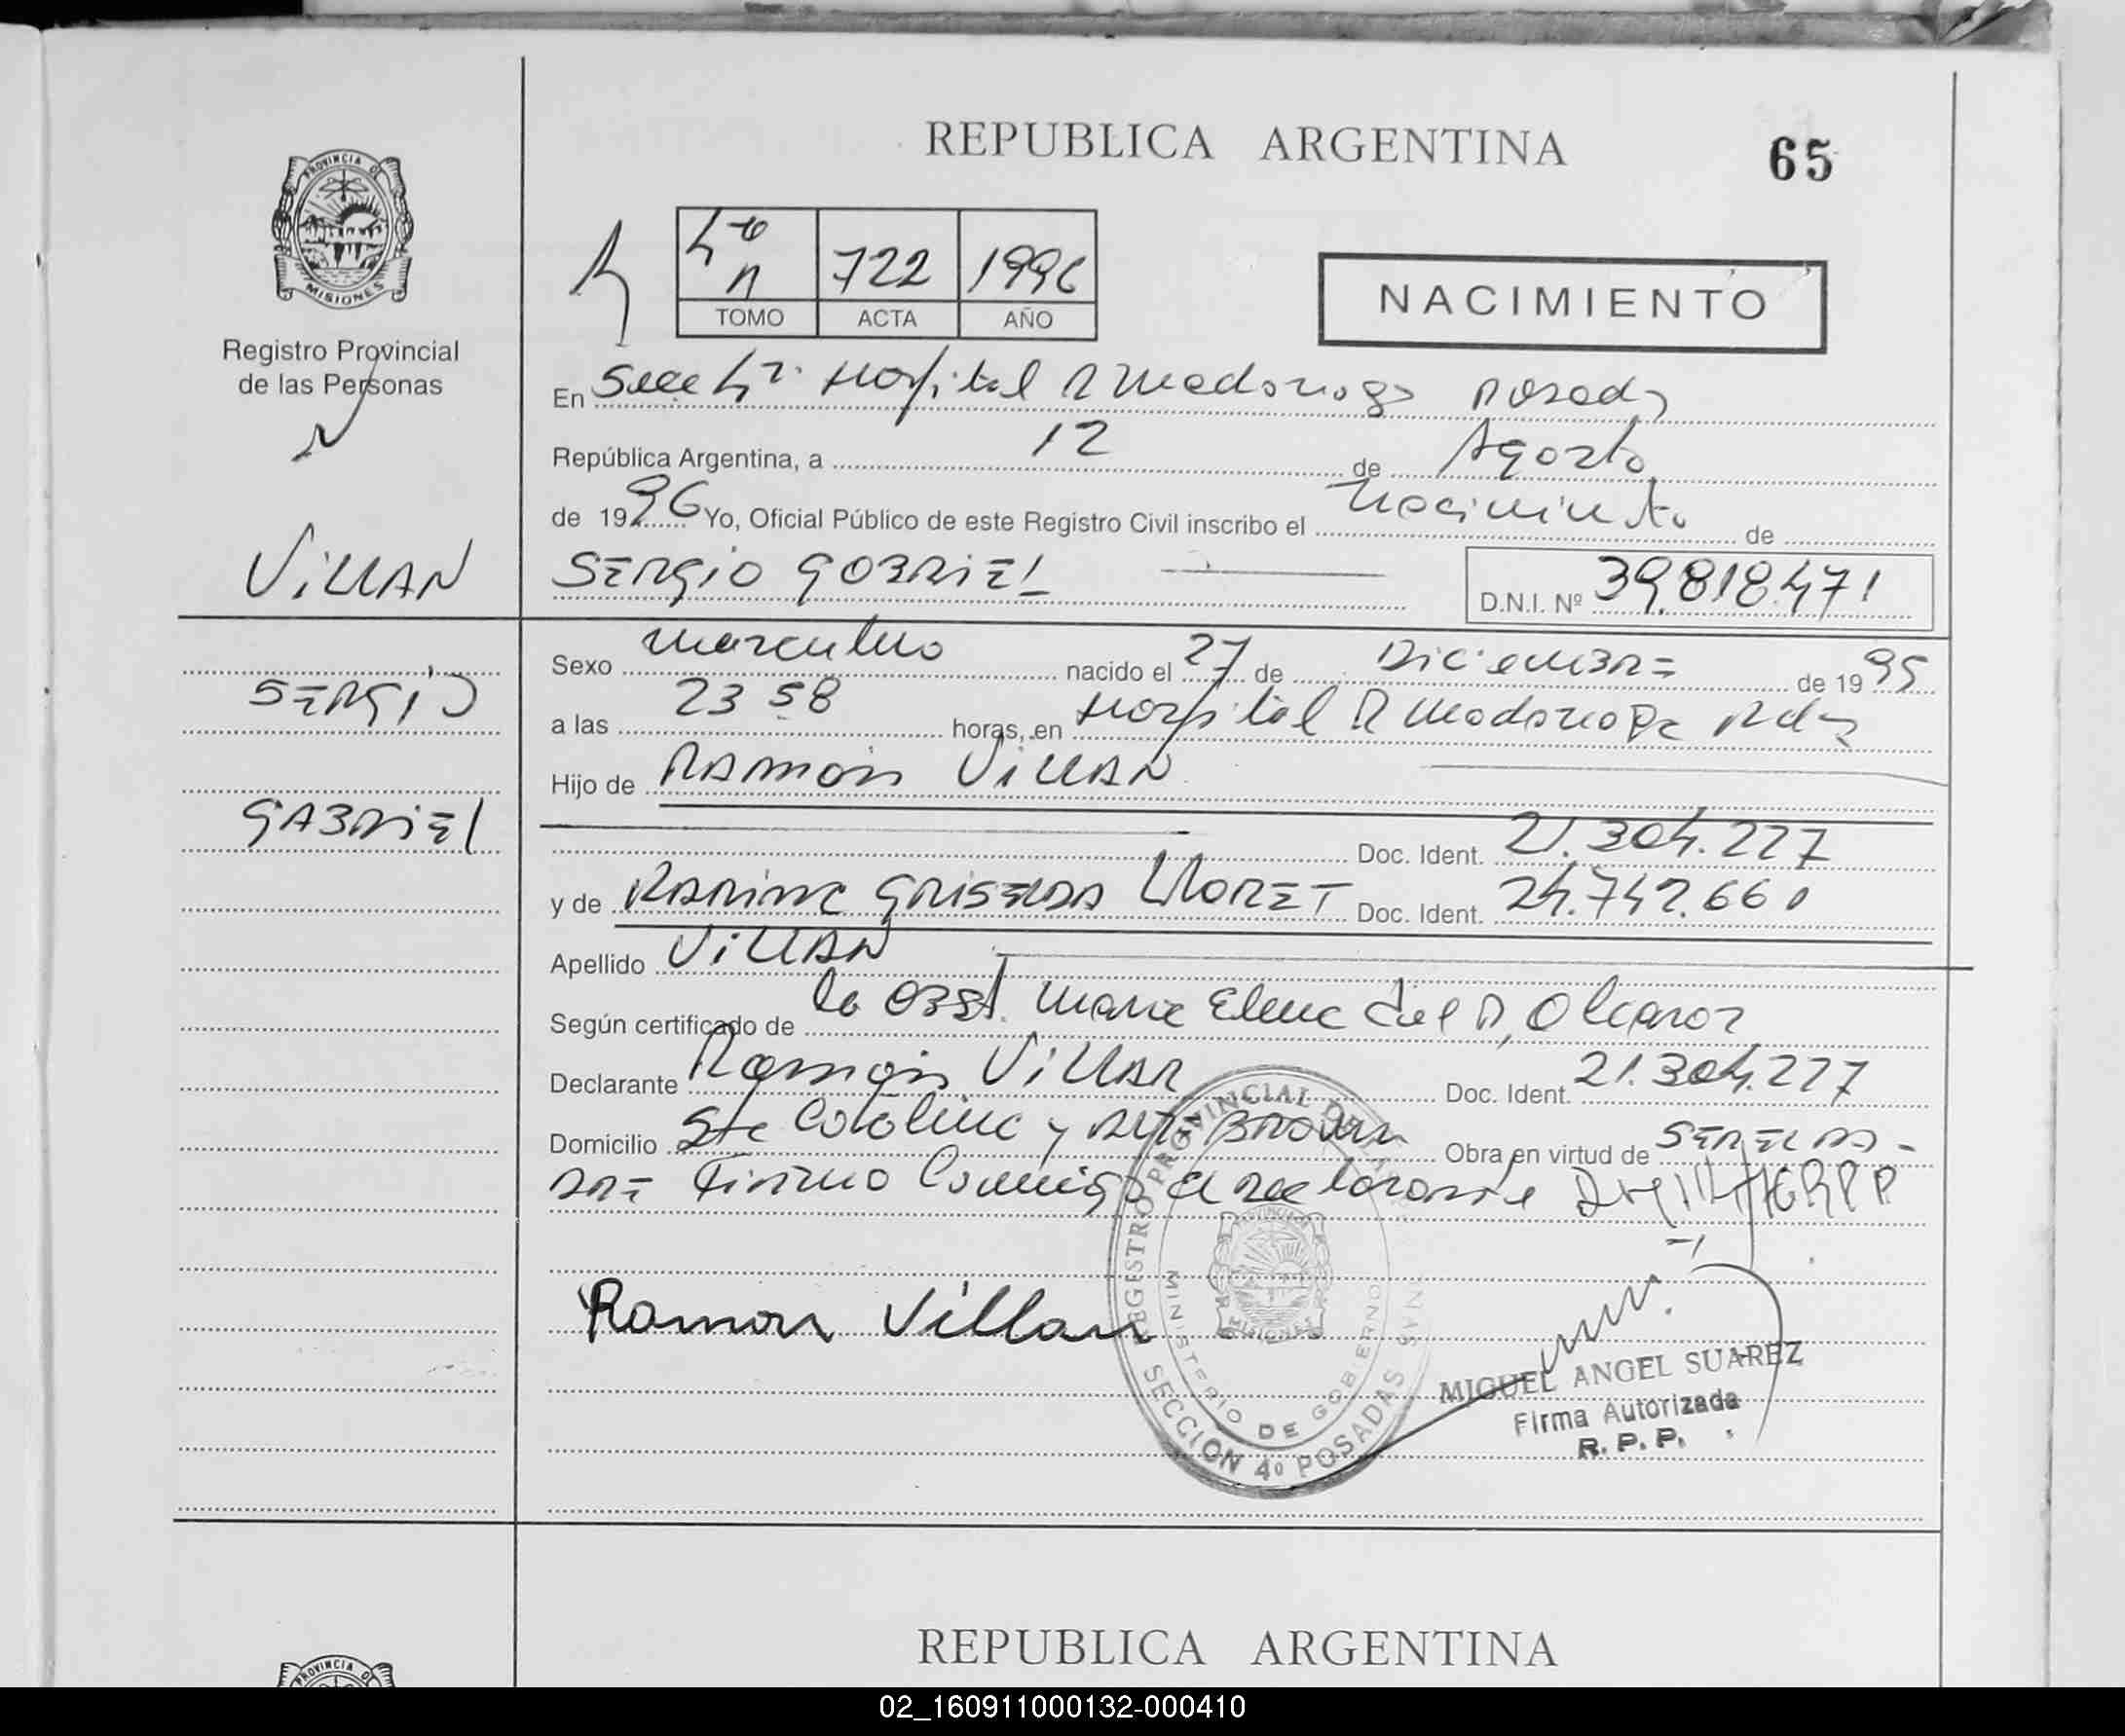 REPUBLICA ARGENTINA
65
PROVINCIA DE
MISIONES
Registro Provincial
de las Personas
4to
N 722 1996
TOMO ACTA AÑO
NACIMIENTO
En Secc 4ta. Hospital R Madariaga Posadas
República Argentina, a 12 de Agosto
de 1996 Yo, Oficial Público de este Registro Civil inscribo el Nacimiento de
VILLAN
SERGIO GABRIEL
D.N.I. Nº 39.818.471
Sexo masculino nacido el 27 de Diciembre de 1995
SERGIO
a las 23 58 horas, en Hospital R Madariaga Pdas
Hijo de RAMON VILLAN
GABRIEL
Doc. Ident. 21.304.227
y de KARINA GRISELDA LLORET Doc. Ident. 24.742.660
Apellido VILLAN
Según certificado de la Obst. Maria Elena del
Declarante Ramón VILLAN Doc. Ident. 21.304.227
Domicilio Sta Catalina y Alte Brown Obra en virtud de SER EL PA-
DRE Firmo Conmigo el declarante
Ramon Villan
REGISTRO PROVINCIAL DE LAS PERSONAS
PROVINCIA DE
MISIONES
MINISTERIO DE GOBIERNO
SECCION 4º POSADAS
MIGUEL ANGEL SUAREZ
Firma Autorizada
R. P. P.
REPUBLICA ARGENTINA
PROVINCIA DE
02_160911000132-000410